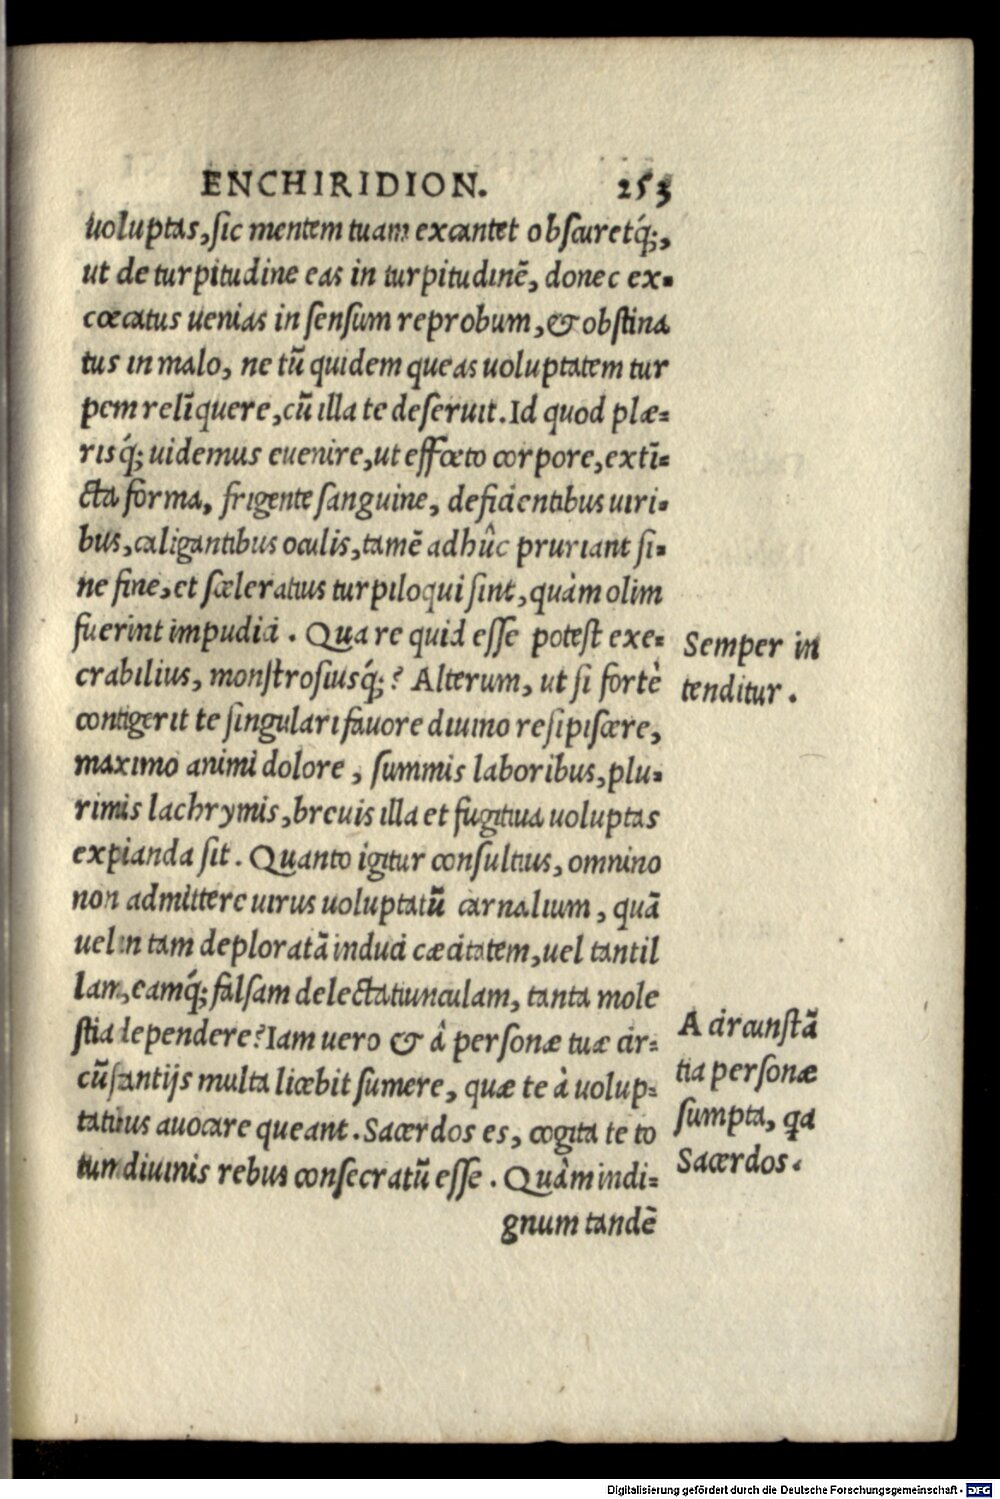 ENCHIRIDION. 253
uoluptas, sic mentem tuam excantet obscuretq́;,
ut de turpitudine eas in turpitudinē, donec ex-
cœcatus uenias in sensum reprobum, & obstina
tus in malo, ne tū quidem queas uoluptatem tur
pem relīquere, cū illa te deseruit. Id quod plæ-
risq́; uidemus euenire, ut effœto corpore, extī-
cta forma, frigente sanguine, deficientibus uiri-
bus, caligantibus oculis, tamē adhûc pruriant si-
ne fine, et sceleratius turpiloqui sint, quàm olim
fuerint impudici. Qua re quid esse potest exe-
crabilius, monstrosiusq́;? Alterum, ut si fortè
contigerit te singulari fauore diuino resipiscere,
maximo animi dolore, summis laboribus, plu-
rimis lachrymis, breuis illa et fugitiua uoluptas
expianda sit. Quanto igitur consultius, omnino
non admittere uirus uoluptatū carnalium, quā
uel in tam deploratā induci cæcitatem, uel tantil
lam, eamq́; falsam delectatiunculam, tanta mole
stia dependere? Iam uero & â personæ tuæ cir-
cūstantijs multa licebit sumere, quæ te à uolup-
tatibus auocare queant. Sacerdos es, cogita te to
tum diuinis rebus consecratū esse. Quàm indi-
gnum tandē
Semper in
tenditur.
A circunstā
tia personæ
sumpta, qa
Sacerdos.
Digitalisierung gefördert durch die Deutsche Forschungsgemeinschaft - DFG